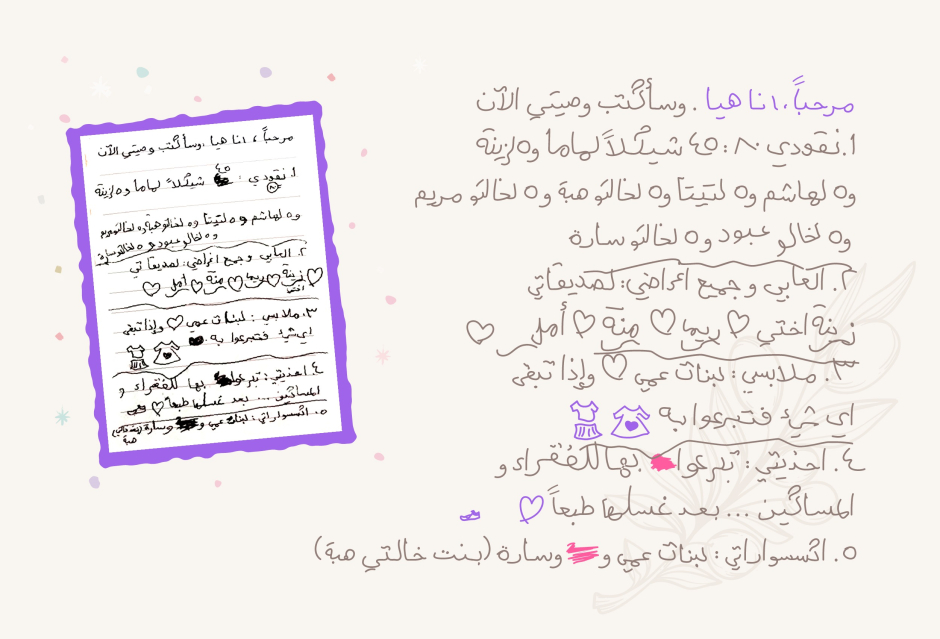 مرحباً، انا هيا . وسأكتب وصيتي الآن
١. نقودي ٨٠ : ٤٥ شيكلاً لماما و٥ لزينة
و٥ لهاشم و٥ لتيتا و٥ لخالتو هبة و٥ لخالتو مريم
و٥ لخالو عبود و٥ لخالتو سارة
٢. العابي وجميع اغراضي: لصديقاتي
زينة اختي ريما منة أمل
٣. ملابسي: لبنات عمي وإذا تبقى
اي شيء فتبرعوا به
٤. احذيتي: تبرعوا بها للفقراء و
المساكين ... بعد غسلها طبعاً
٥. اكسسواراتي: لبنات عمي و وسارة (بنت خالتي هبة)
مرحباً، انا هيا .وسأكتب وصيتي الآن
١. نقودي: ٤٥ شيكلاً لماما و٥ لزينة
٨٠
و٥ لهاشم و٥ لتيتا و٥ لخالتو هبة و٥ لخالتو مريم
و٥ لخالو عبود و٥ لخالتو سارة
٢. العابي وجميع اغراضي: لصديقاتي
زينة ريما منة أمل
اختي
٣. ملابسي: لبنات عمي وإذا تبقى
اي شيء فتبرعوا به
٤. احذيتي: تبرعوا بها للفقراء و
المساكين ... بعد غسلها طبعاً
٥. اكسسواراتي: لبنات عمي و وسارة
هبة